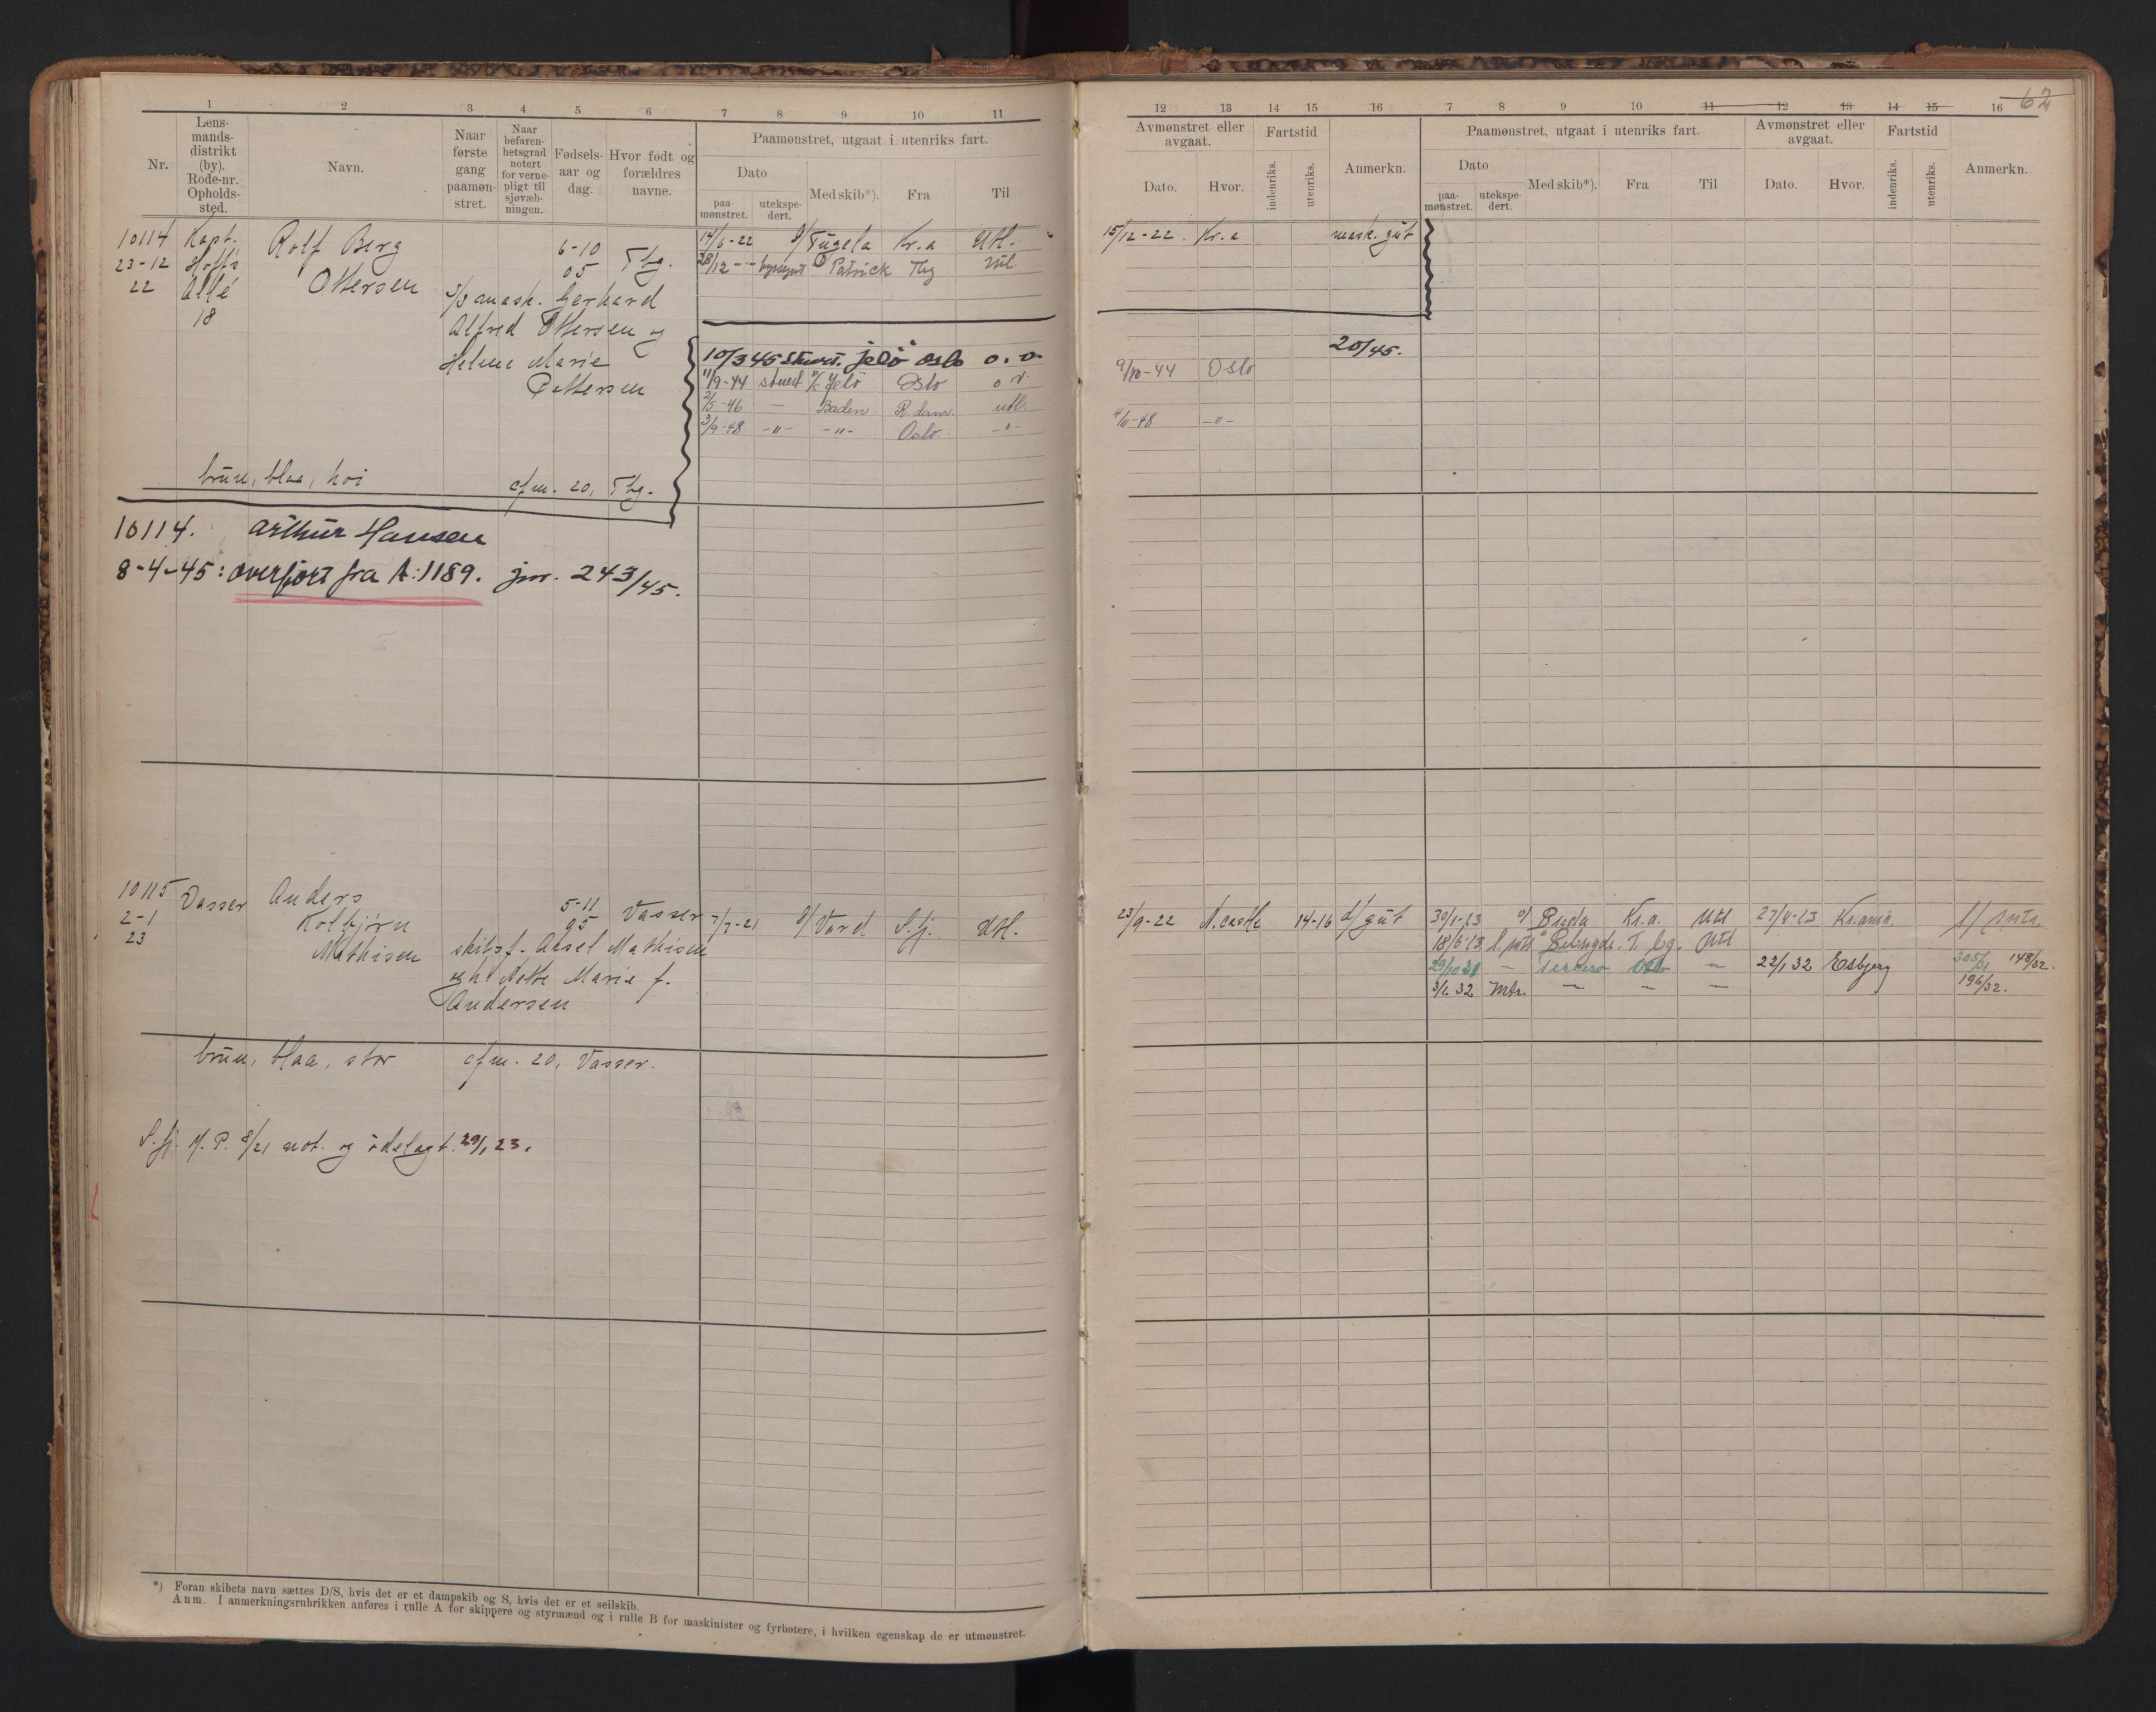 1 2 3 4 5 6 7 8 9 10 11
Nr.
Lens-
mands-
distrikt
(by).
Rode-nr.
Opholds-
sted.
Navn.
Naar
første
gang
paamøn-
stret.
Naar
befaren-
hetsgrad
notert
for verne-
pligt til
sjøvæb-
ningen.
Fødsels-
aar og
dag.
Hvor født og
forældres
navne.
Paamønstret, utgaat i utenriks fart.
Dato
paa-
mønstret.
utekspe-
dert.
Med skib*).
Fra
Til
10114 Kapt. Rolf Berg 6-10 14/6-22 Tugela Kr.a Utl.
23-12 Hoffs 05 Tbg. 28/12 Patrick Tbg Utl.
22 Allé Ottersen
18 mask. Gerhard
Alfred Ottersen og
Helene Marie
Pettersen
10/3 45 Stuert. Jelö Oslo o.v.
11/9-44 stuert Jelö Oslo o.v.
2/5-46 — Baden R.dam. utl.
3/9-48 -"- -"- Oslo. -"-
brun, blaa, höi cfm. 20, Tbg.
10114. Arthur Hansen
8-4-45: overført fra A:1189. jnr. 243/45.
10115 Vasser Anders 5-11 Vasser 7/7-21 Vard S.fj. Utl.
2-1 Kolbjørn 95
23 Mathisen skibsf. Aksel Mathisen
og h. Nette Marie f.
Andersen
brun, blaa, stor cfm. 20, Vasser.
S.fj. M.P. 8/21 not. og ødelagt. 29/1 23.
*) Foran skibets navn sættes D/S, hvis det er et dampskib og S, hvis det er et seilskib.
Anm. I anmerkningsrubrikken anføres i rulle A for skippere og styrmænd og i rulle B for maskinister og fyrbøtere, i hvilken egenskap de er utmønstret.
62
12 13 14 15 16 7 8 9 10 11 12 13 14 15 16
Avmønstret eller
avgaat.
Dato.
Hvor.
Fartstid
indenriks.
utenriks.
Anmerkn.
Paamønstret, utgaat i utenriks fart.
Dato
paa-
mønstret.
utekspe-
dert.
Med skib*).
Fra
Til
Avmønstret eller
avgaat.
Dato.
Hvor.
Fartstid
indenriks.
utenriks.
Anmerkn.
15/12-22. Kr.a mask. gut
20/45.
9/10-44 Oslo
4/11-48 -"-
23/9-22 N.castle 14-16 d/gut 30/1-23 Kr.a. Utl 27/4-23 Kr.ania.
18/6-23 T.bg. Utl
29/10 31 — Tercero Osl — 22/1 32 Esbjerg 305/31 148/32.
3/2 32 Mtr. — — — 196/32.